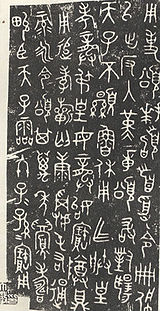 用事頌拜稽首受令冊佩
以出反入堇章頌敢對揚
天子不顯魯休用乍朕皇
考龏叔皇母龏始寶尊
用追孝康右通
彔永令頌萬年眉壽
畯臣天子霝冬子孫寶用